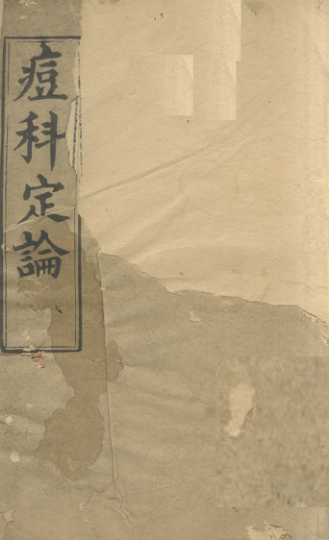 痘科定論